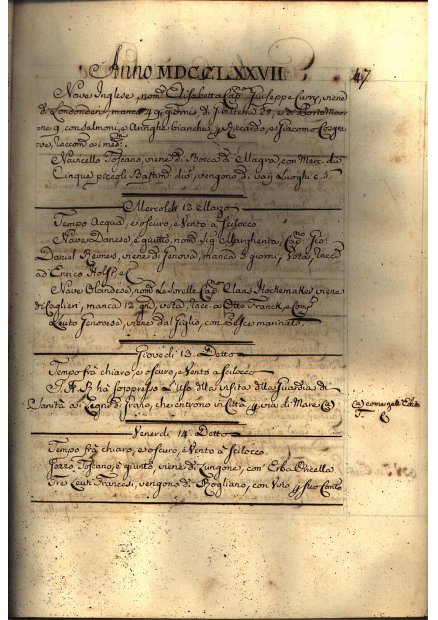 Anno MDCCLXXVII 47
Nave Inglese, nom. Elisabetta Cap. Giuseppe Curry, viene
di Londonderi, manca 49 giorni, di
con Salmoni, e Aringhe bianche, p Riccardo, e Giacomo
Navicello Toscano, viene di Bocca di Magra, con Merc. div.
Cinque piccoli Bastim. div. vengono di varj Luoghi c. s.
Mercoldì 12. Marzo
Tempo Acqua, e oscuro, e Vento a Scilocco
Nave Danese, è giunto, nom. Sig. Margherita, Cap. Gio:
Daniel Reimers, viene di Genova, manca giorni, Vota, Racc.
ad Enrico
Nave Olandese, nom. Cap. Claas viene
di Caglieri, manca 12. gi. vota, racc. a Otto Franck, e Comp.
Leuto Genovese, viene dal Giglio, con Pesce marinato.
Giovedì 13. Detto
Tempo frà chiaro, e oscuro, e Vento a Scilocco
S. A. R. hà soppresso l'Uso della visita della Guardia di
Sanità ai Legni di Grano, che entrono in Città p via di Mare (a)
(a) come
Venerdì 14. Detto
Tempo frà chiaro, e oscuro, e Vento a Scilocco
Gozzo, Toscano, è giunto, viene di Zungone, con Erba Oricella
Tre Leuti Francesi, vengono di Rogliano, con Vino p suo Conto